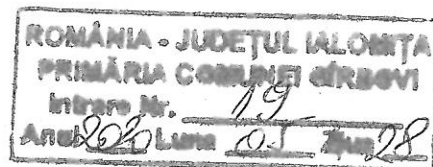 ROMÂNIA • JUDEȚUL IALOMIȚA
PRIMĂRIA COMUNEI GÎRBOVI
Intrare Nr. 19
Anul 2020 Luna Ziua 28